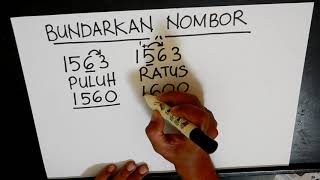 BUNDARKAN NOMBOR
1563 1563
PULUH RATUS
1560 1600